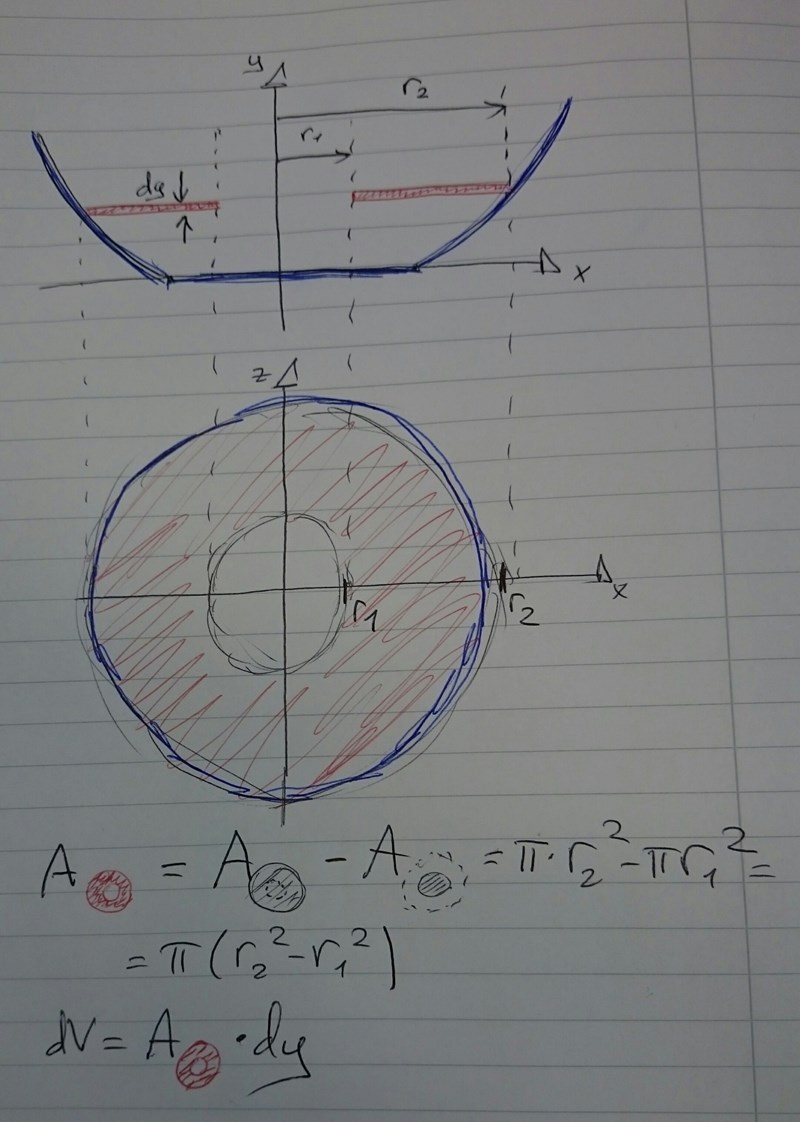 y
r₂
r₁
dy
x
z
x
r₁
r₂
A = A - A = π·r₂² - πr₁² =
= π(r₂² - r₁²)
dV = A · dy